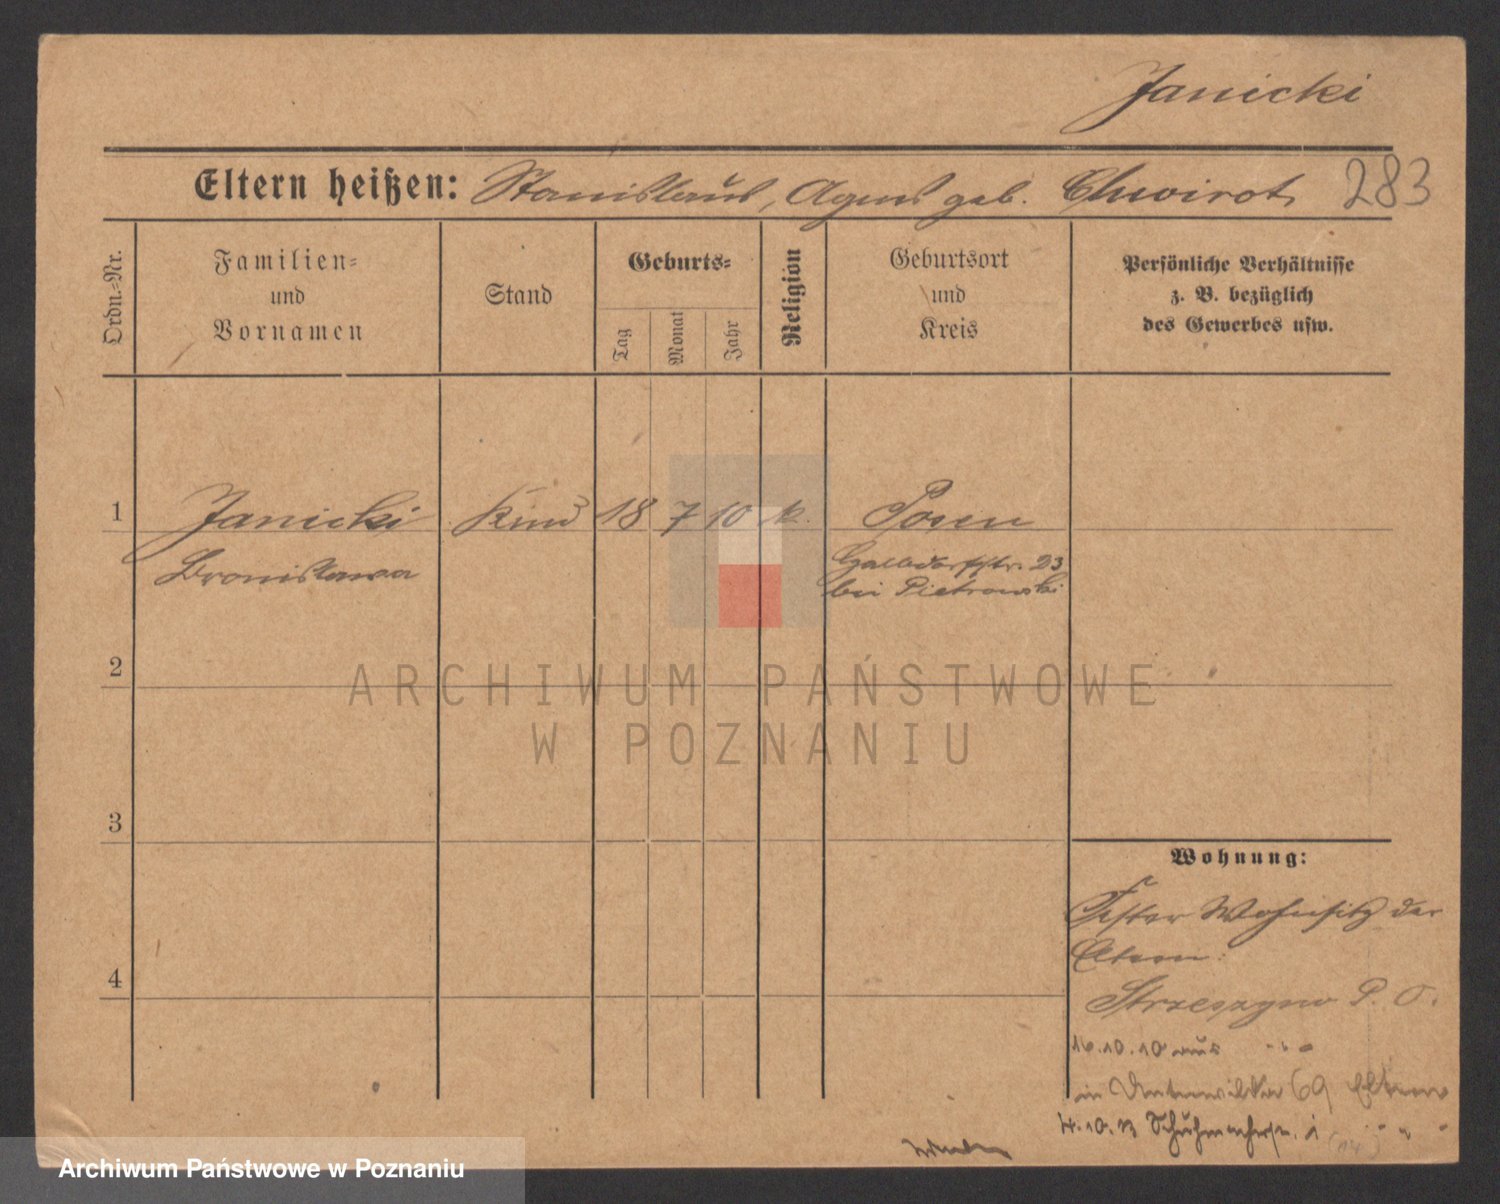 Janicki
Eltern heißen: Stanislaus, Agnes geb. Chwirot, 283
Ordn.=Nr.
Familien=
und
Vornamen
Stand
Geburts=
Tag
Monat
Jahr
Religion
Geburtsort
und
Kreis
Persönliche Verhältnisse
z. B. bezüglich
des Gewerbes usw.
1 Janicki Kind 18 7 10 k. Posen
Bronislawa
23
bei Pietrowski
2
ARCHIWUM PAŃSTWOWE
W POZNANIU
3
Wohnung:
4
Fester Wohnsitz der
Eltern:
Strzeszyno P. O.
16.10.10 aus " " "
in Unterwilda 69 Eltern
4.10.13
Archiwum Państwowe w Poznaniu